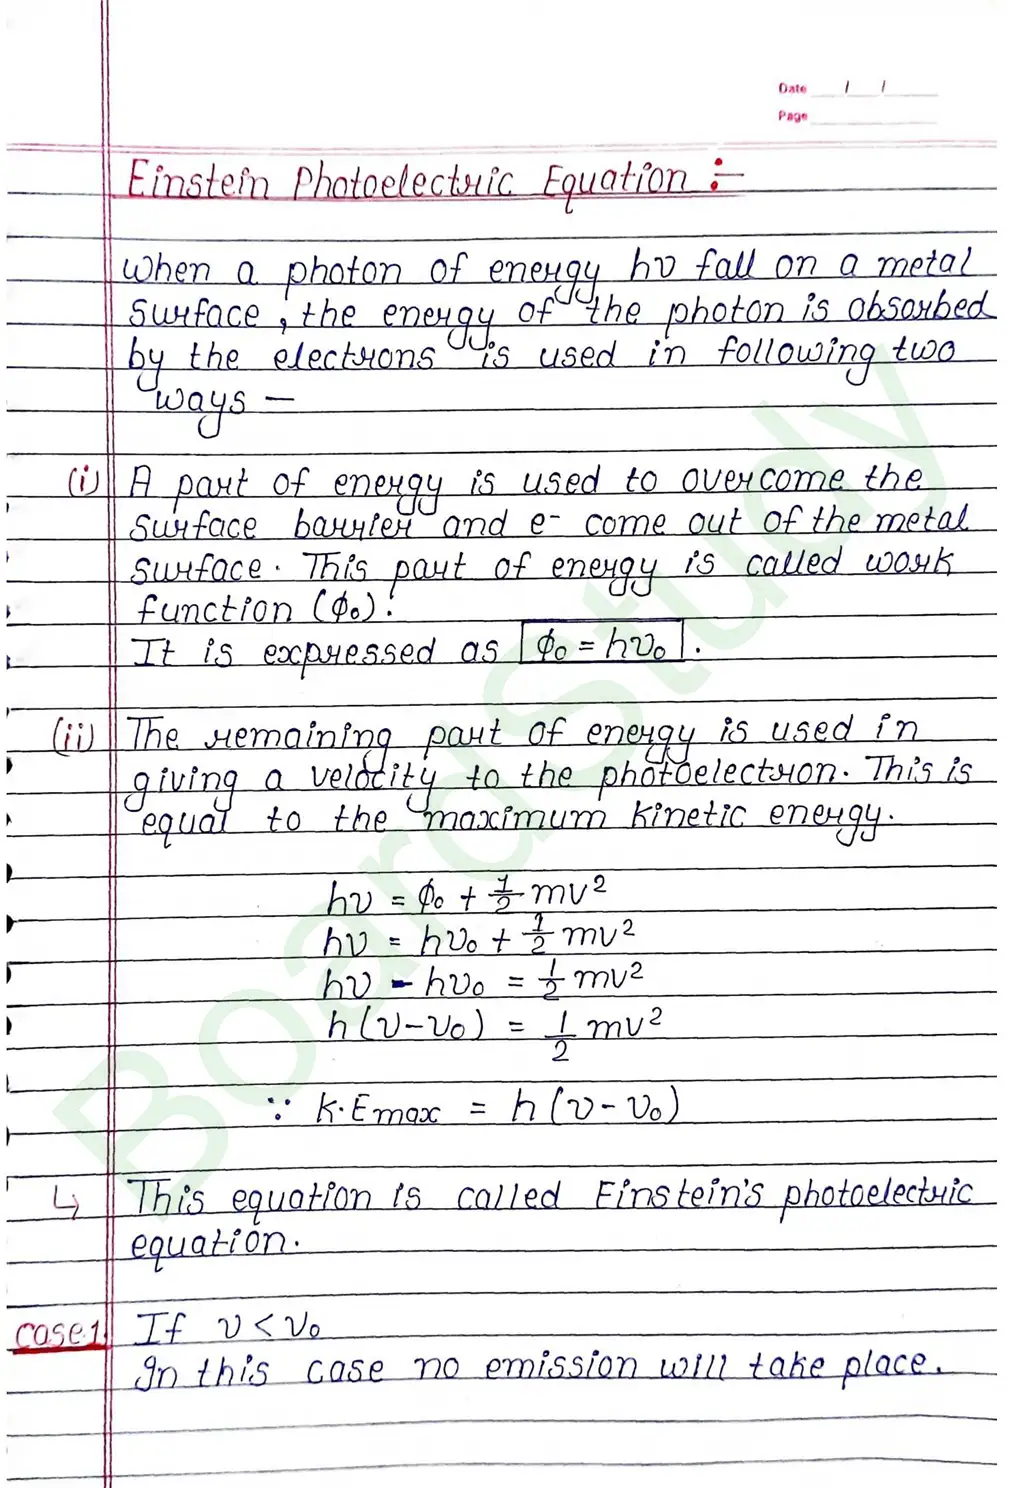 Date / /
Page
Einstein Photoelectric Equation :-
When a photon of energy hυ fall on a metal
surface, the energy of the photon is absorbed
by the electrons is used in following two
ways —
(i) A part of energy is used to overcome the
surface barrier and e⁻ come out of the metal
surface. This part of energy is called work
function (ϕ₀).
It is expressed as ϕ₀ = hυ₀.
(ii) The remaining part of energy is used in
giving a velocity to the photoelectron. This is
equal to the maximum kinetic energy.
hυ = ϕ₀ + 1/2 mv²
hυ = hυ₀ + 1/2 mv²
hυ - hυ₀ = 1/2 mv²
h(υ-υ₀) = 1/2 mv²
∵ K.Emax = h(υ-υ₀)
↳ This equation is called Einstein's photoelectric
equation.
case.1 If υ < υ₀
In this case no emission will take place.
BoardStudy